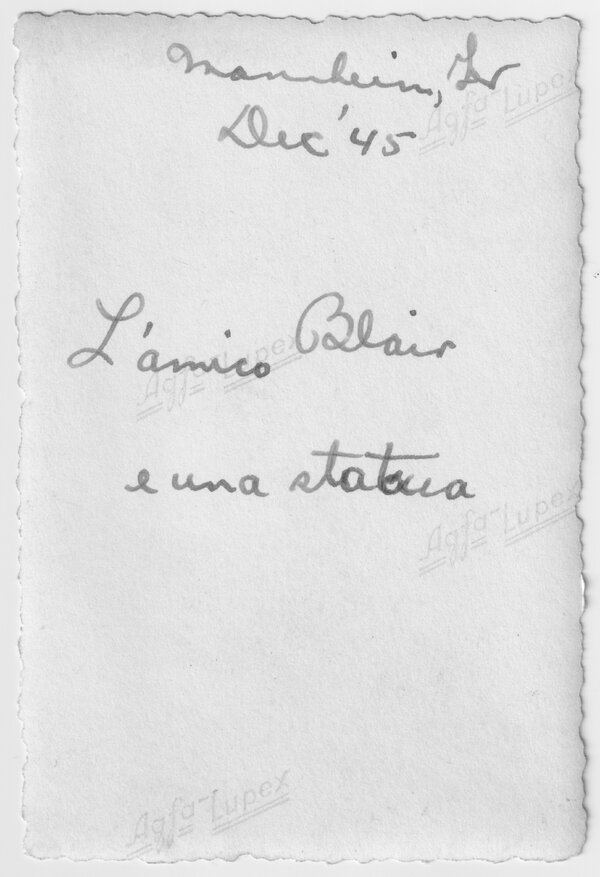 Mannheim, Gr
Dec '45
L'amico Blair
e una statua
Agfa-Lupex
Agfa-Lupex
Agfa-Lupex
Agfa-Lupex